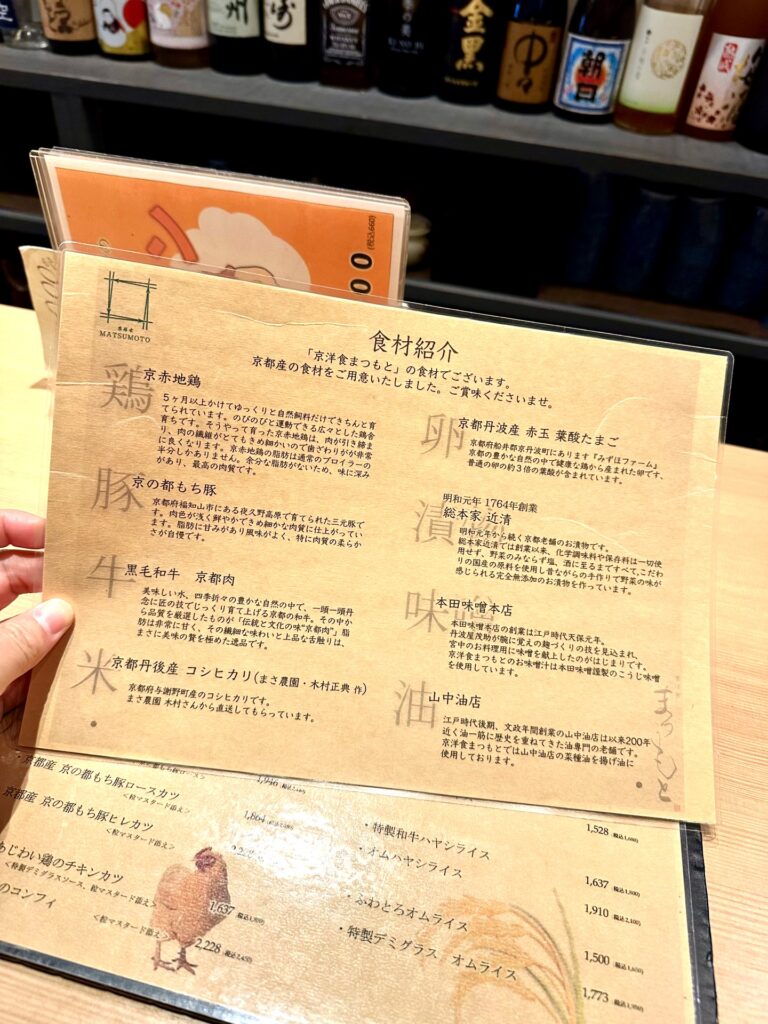 州
金黒
中々
朝日
(税込660)
00
京洋食
MATSUMOTO
食材紹介
「京洋食まつもと」の食材でございます。
京都産の食材をご用意いたしました。ご賞味くださいませ。
鶏
京赤地鶏
5ヶ月以上かけてゆっくりと自然飼料だけできちんと育
てられています。のびのびと運動できる広々とした鶏舎
育ちです。そうやって育った京赤地鶏は、肉が引き締ま
り、肉の繊維がとてもきめ細かいので歯ざわりがが非常
に良くなります。京赤地鶏の脂肪は通常のブロイラーの
半分しかありません。余分な脂肪がないため、味に深み
があり、最高の肉質です。
豚
京の都もち豚
京都府福知山市にある夜久野高原で育てられた三元豚で
す。肉色が浅く鮮やかできめ細かな肉質に仕上がってい
ます。脂肪に甘みがあり風味がよく、特に肉質の柔らか
さが自慢です。
牛
黒毛和牛 京都肉
美味しい水、四季折々の豊かな自然の中で、一頭一頭丹
念に匠の技でじっくり育て上げる京都の和牛。その中か
ら品質を厳選したものが「伝統と文化の味“京都肉」脂
肪は非常に甘く、その繊細な味わいと上品な舌触りは、
まさに美味の贅を極めた逸品です。
米
京都丹後産 コシヒカリ(まさ農園・木村正典 作)
京都府与謝野町産のコシヒカリです。
まさ農園 木村さんから直送してもらっています。
卵
京都丹波産 赤玉 葉酸たまご
京都府船井郡京丹波町にあります「みずほファーム」
京都の豊かな自然の中で健康な鶏から産まれた卵です、
普通の卵の約3倍の葉酸が含まれています。
漬物
明和元年 1764年創業
総本家 近清
明和元年から続く京都老舗のお漬物です。
総本家近清では創業以来、化学調味料や保存料は一切使
用せず、野菜のみならず塩、酒に至るまですべて,こだわ
りの国産の原料を使用し昔ながらの手作りで野菜の味が
感じられる完全無添加のお漬物を作っています。
味噌
本田味噌本店
本田味噌本店の創業は江戸時代天保元年。
丹波屋茂助が腕に覚えの麹づくりの技を見込まれ、
宮中のお料理用に味噌を献上したのがはじまりです。
京洋食まつもとのお味噌汁は本田味噌謹製のこうじ味噌
を使用しています。
油
山中油店
江戸時代後期、文政年間創業の山中油店は以来200年
近く油一筋に歴史を重ねてきた油専門の老舗です。
京洋食まつもとでは山中油店の菜種油を揚げ油に
使用しております。
まつもと
京都産 京の都もち豚ロースカツ
<粒マスタード添え>
1,946
京都産 京の都もち豚ヒレカツ
<粒マスタード添え>
1,864
あじわい鶏のチキンカツ
<特製デミグラスソース、粒マスタード添え>
1,637
のコンフィ
<粒マスタード添え>
2,228 (税込2,450)
・特製和牛ハヤシライス
1,528 (税込1,680)
・オムハヤシライス
1,637 (税込1,800)
1,910 (税込2,100)
・ふわとろオムライス
1,500 (税込1,650)
・特製デミグラス オムライス
1,773 (税込1,950)